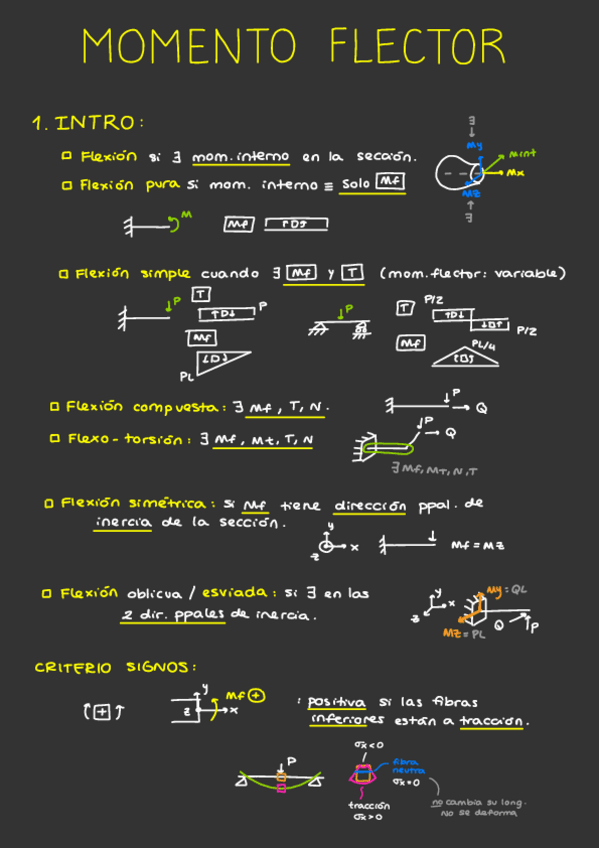 MOMENTO FLECTOR
1. INTRO:
□ Flexión si ∃ mom. interno en la sección.
□ Flexión pura si mom. interno ≡ solo Mf
∃
My
Mint
Mx
Mz
∃
M
Mf
□ Flexión simple cuando ∃ Mf y T (mom. flector: variable)
P
T
P
Mf
PL
P
T
P/2
P/2
Mf
PL/4
□ Flexión compuesta: ∃ Mf, T, N.
P
Q
□ Flexo-torsión: ∃ Mf, Mt, T, N
P
Q
∃ Mf, MT, N, T
□ Flexión simétrica: si Mf tiene dirección ppal. de
inercia de la sección.
y
x
z
Mf = Mz
□ Flexión oblicua / esviada: si ∃ en las
2 dir. ppales de inercia.
y
x
z
My = QL
Mz = PL
Q
P
CRITERIO SIGNOS:
+
y
z
x
Mf +
: positiva si las fibras
inferiores están a tracción.
P
σx<0
fibra
neutra
σx=0
tracción
σx>0
no cambia su long.
No se deforma